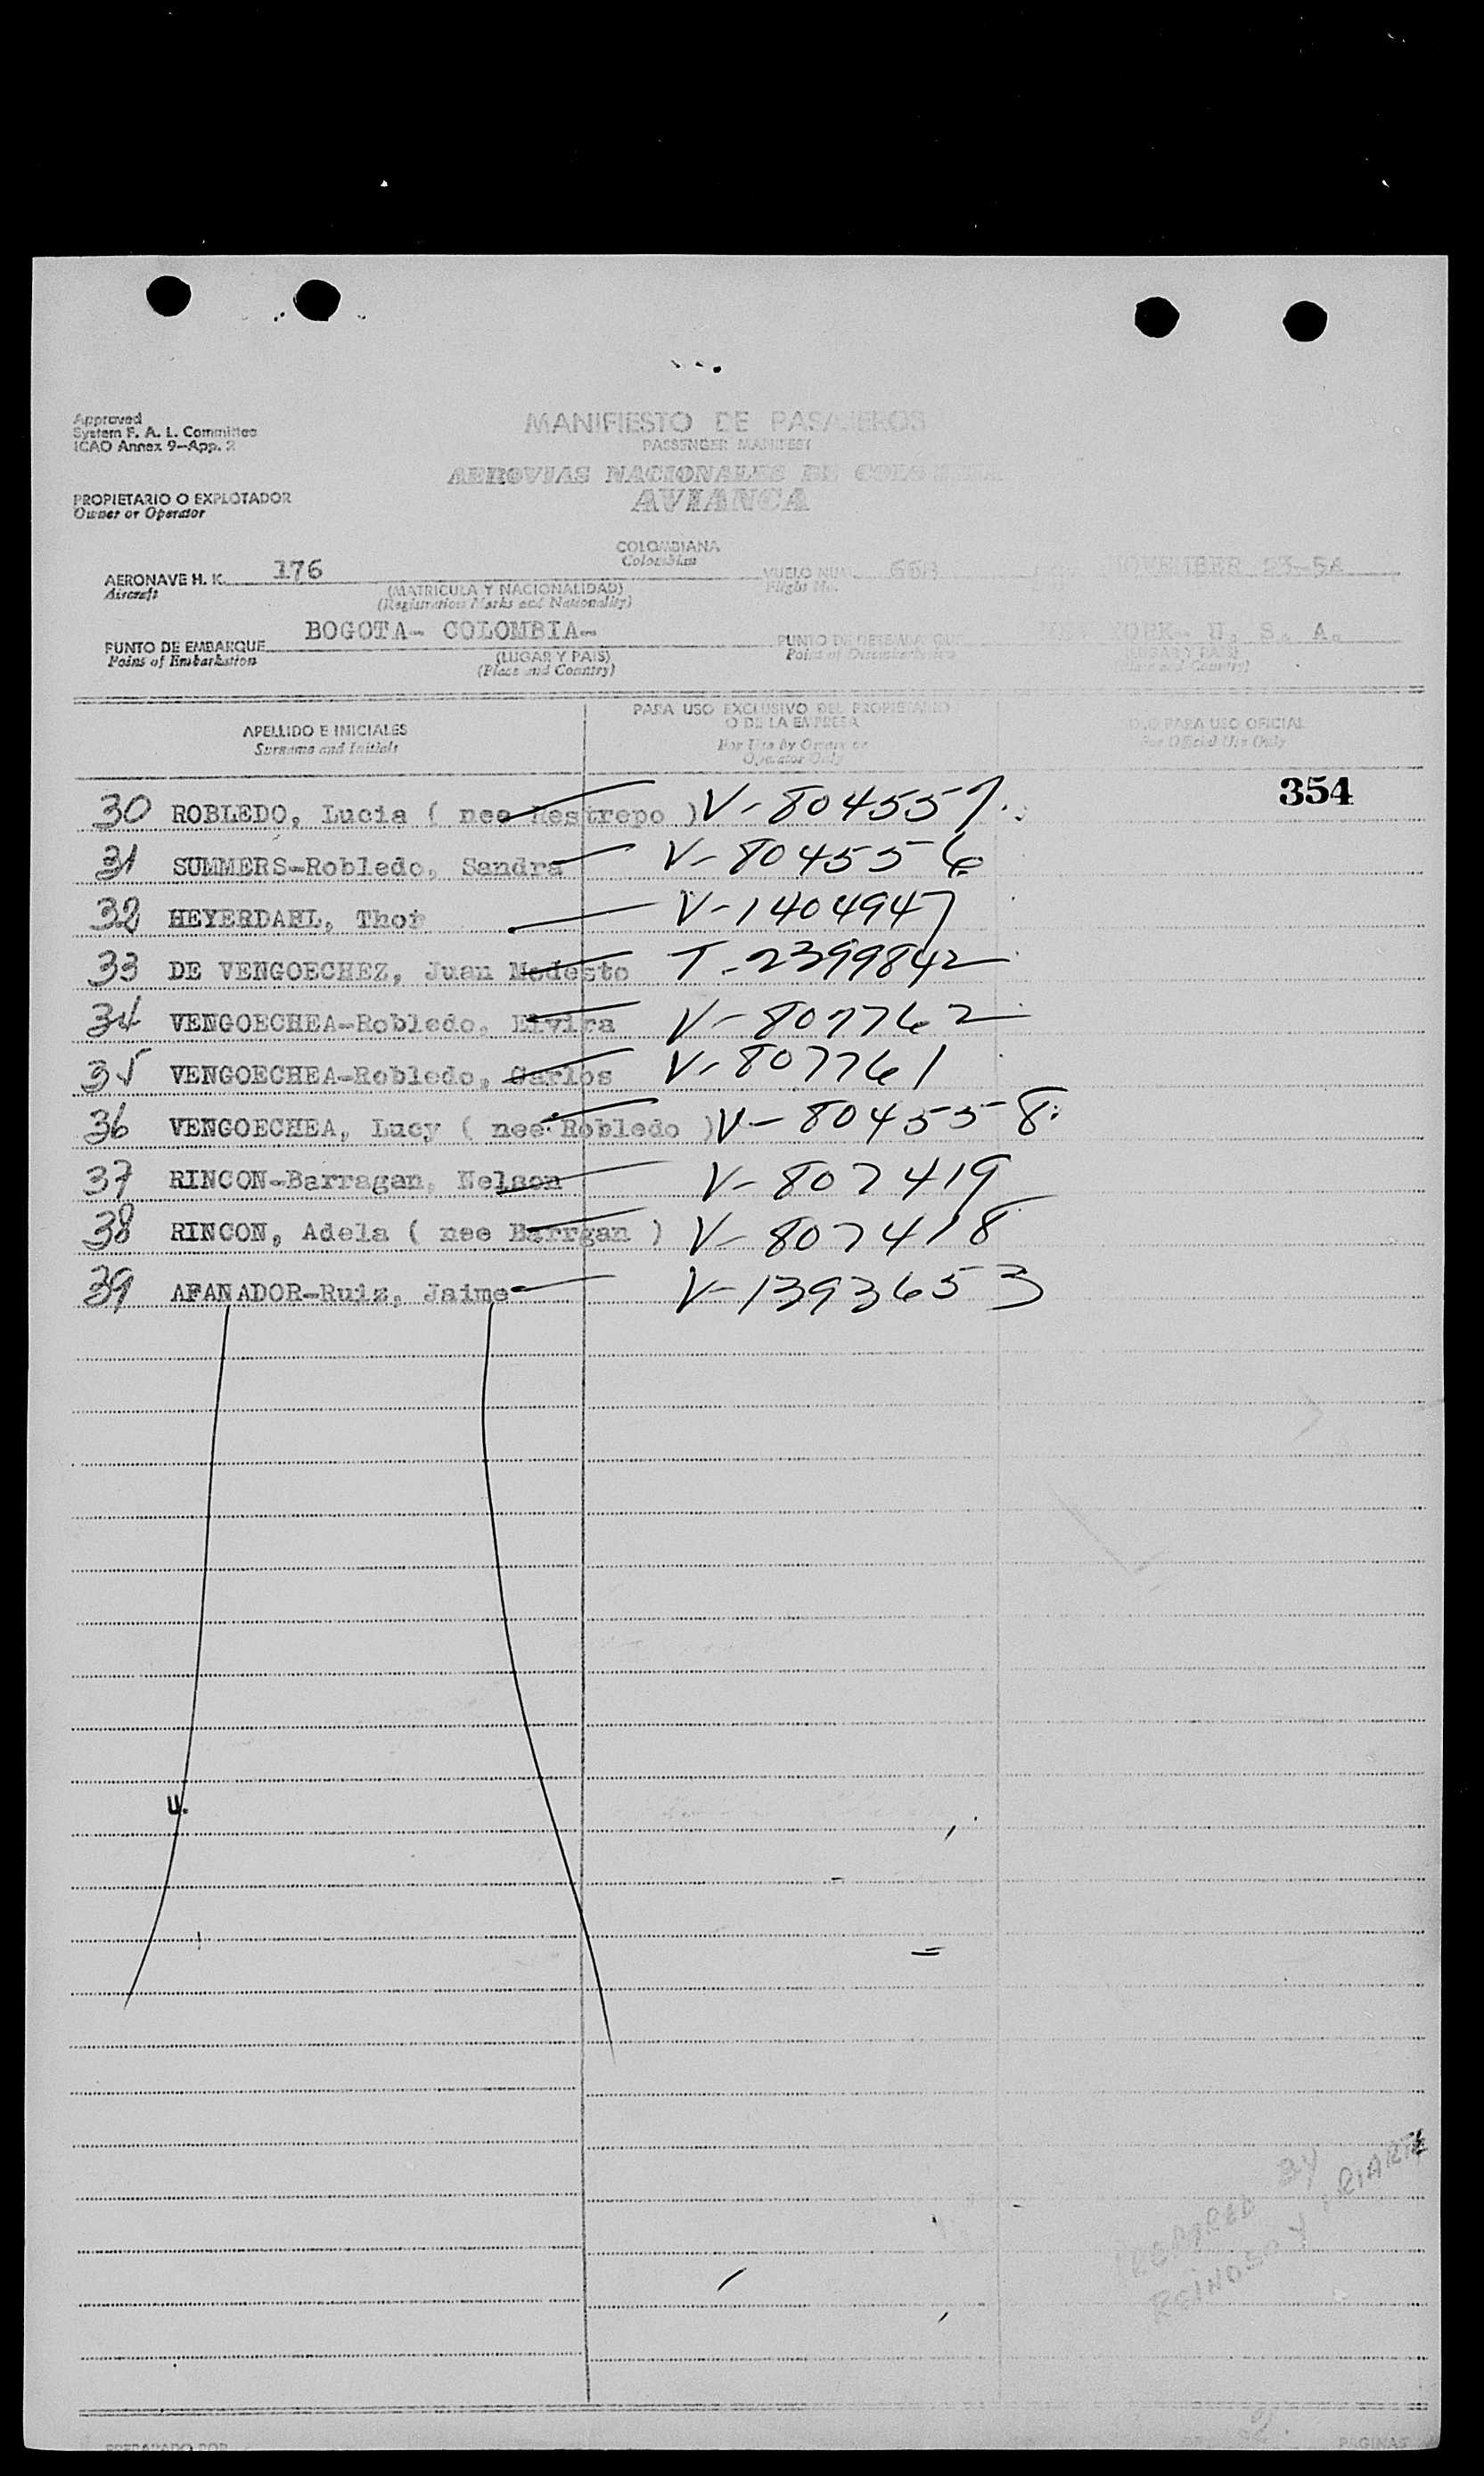 Approved
System F. A. L. Committee
ICAO Annex 9—App. 2
MANIFIESTO DE PASAJEROS
PASSENGER MANIFEST
AEROVIAS NACIONALES DE COLOMBIA
AVIANCA
PROPIETARIO O EXPLOTADOR
Owner or Operator
COLOMBIANA
Colombian
AERONAVE H. K. 176 VUELO NUM. 668 NOVEMBER 23-54
Aircraft (MATRICULA Y NACIONALIDAD) Flight No.
(Registration Marks and Nationality)
PUNTO DE EMBARQUE BOGOTA- COLOMBIA- PUNTO DE DESEMBARQUE NEW YORK- U. S. A.
Point of Embarkation (LUGAR Y PAIS) Point of Disembarkation (LUGAR Y PAIS)
(Place and Country) (Place and Country)
APELLIDO E INICIALES PARA USO EXCLUSIVO DEL PROPIETARIO O DE LA EMPRESA SOLO PARA USO OFICIAL
Surname and Initials For Use by Owner or Operator Only For Official Use Only
354
30 ROBLEDO, Lucia ( nee Restrepo ) V-804557
31 SUMMERS-Robledo, Sandra V-804556
32 HEYERDAHL, Thor V-1404947
33 DE VENGOECHEZ, Juan Modesto T-2399842
34 VENGOECHEA-Robledo, Elvira V-807762
35 VENGOECHEA-Robledo, Carlos V-807761
36 VENGOECHEA, Lucy ( nee Robledo ) V-804558
37 RINCON-Barragan, Nelson V-807419
38 RINCON, Adela ( nee Barrgan ) V-807418
39 AFANADOR-Ruiz, Jaime V-1393653
U.
PREPARED BY
REINOSO Y
PREPARADO POR PAGINAS